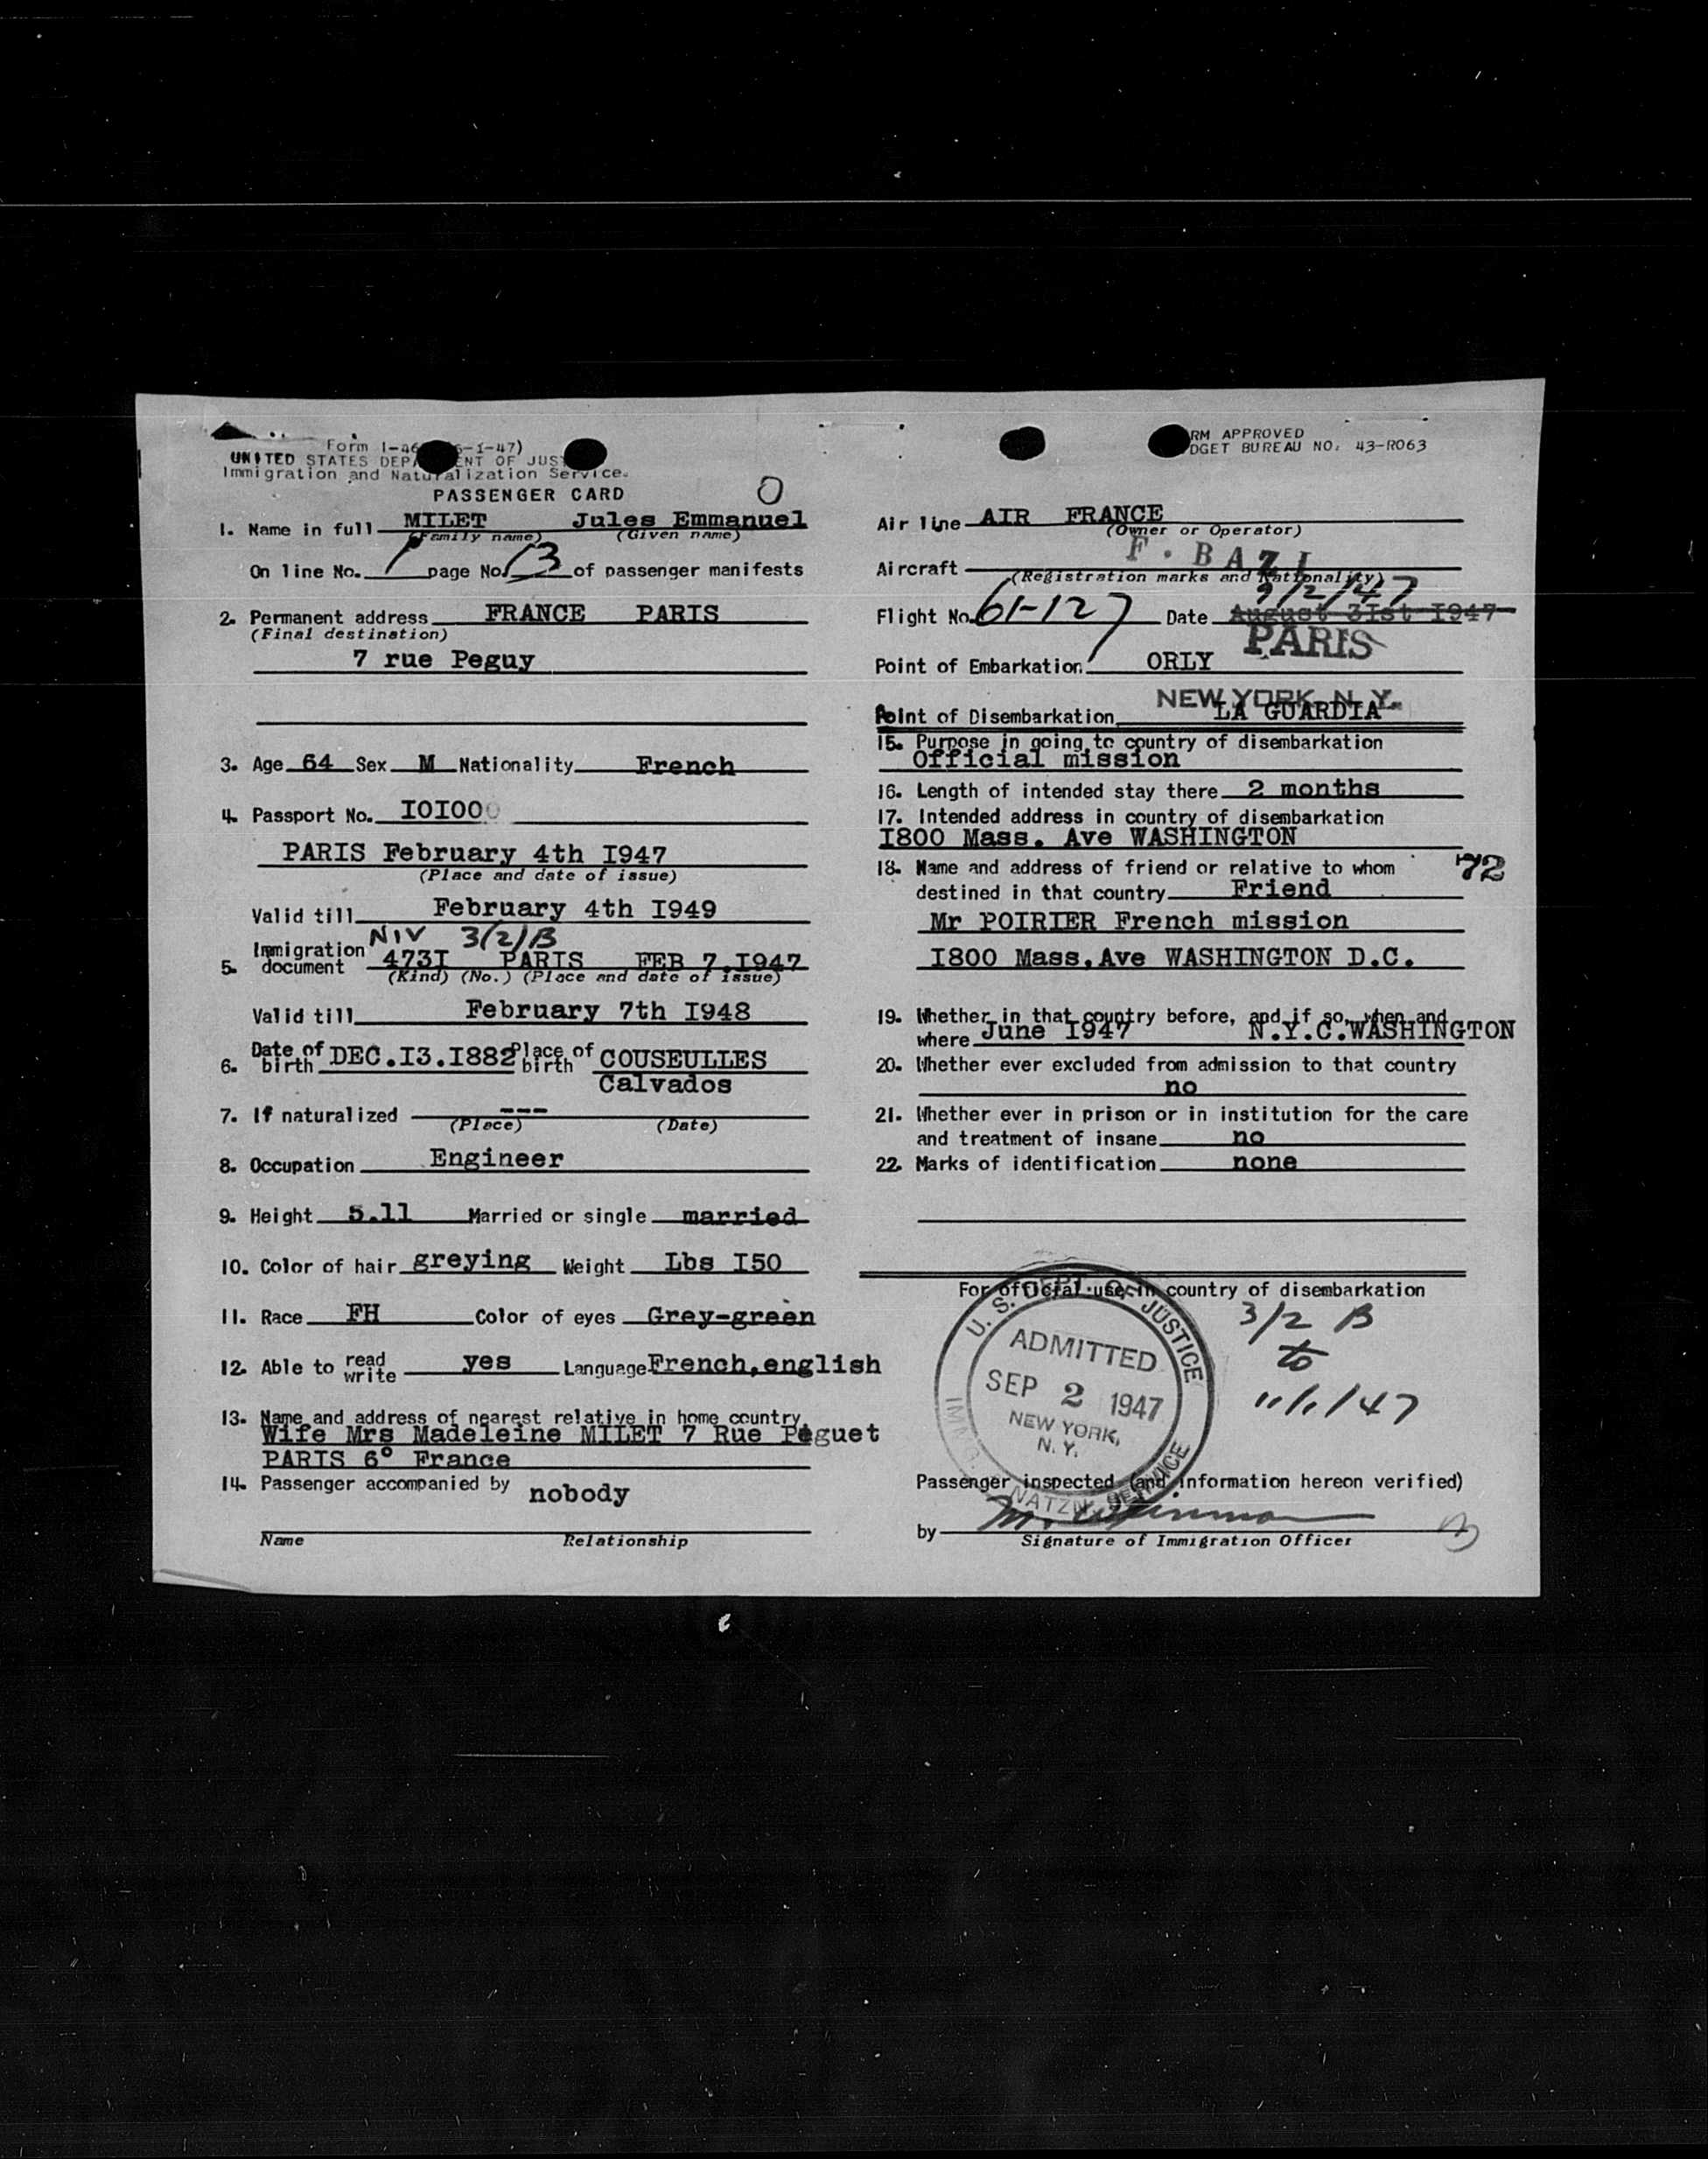 Form I-46 6-1-47)
UNITED STATES DEPA ENT OF JUS
Immigration and Naturalization Service.
PASSENGER CARD O
1. Name in full MILET Jules Emmanuel
(Family name) (Given name)
On line No. 1 page No. 13 of passenger manifests
2. Permanent address FRANCE PARIS
(Final destination)
7 rue Peguy
3. Age 64 Sex M Nationality French
4. Passport No. IOIOO
PARIS February 4th I947
(Place and date of issue)
Valid till February 4th I949
NIV 3(2)B
5. Immigration document 473I PARIS FEB 7.I947
(Kind) (No.) (Place and date of issue)
Valid till February 7th I948
6. Date of birth DEC.I3.I882 Place of birth COUSEULLES
Calvados
7. If naturalized ---
(Place) (Date)
8. Occupation Engineer
9. Height 5.11 Married or single married
10. Color of hair greying Weight Lbs I50
11. Race FH Color of eyes Grey-green
12. Able to read write yes Language French,english
13. Name and address of nearest relative in home country
Wife Mrs Madeleine MILET 7 Rue Péguet
PARIS 6° France
14. Passenger accompanied by nobody
Name Relationship
RM APPROVED
DGET BUREAU NO. 43-R063
Air line AIR FRANCE
(Owner or Operator)
Aircraft F.BAZI
(Registration marks and Nationality)
9/2/47
Flight No. 61-127 Date August 3Ist I947
PARIS
Point of Embarkation ORLY
NEW YORK, N.Y.
Point of Disembarkation LA GUARDIA
15. Purpose in going to country of disembarkation
Official mission
16. Length of intended stay there 2 months
17. Intended address in country of disembarkation
I800 Mass. Ave WASHINGTON
18. Name and address of friend or relative to whom 72
destined in that country Friend
Mr POIRIER French mission
I800 Mass.Ave WASHINGTON D.C.
19. Whether in that country before, and if so, when and
where June I947 N.Y.C.WASHINGTON
20. Whether ever excluded from admission to that country
no
21. Whether ever in prison or in institution for the care
and treatment of insane no
22. Marks of identification none
For official use in country of disembarkation
U. S. DEPT. OF JUSTICE
ADMITTED
SEP 2 1947
NEW YORK,
N. Y.
IMMIG. NATZN. SERVICE
3/2 B
to
11/1/47
Passenger inspected (and information hereon verified)
by M.
Signature of Immigration Officer